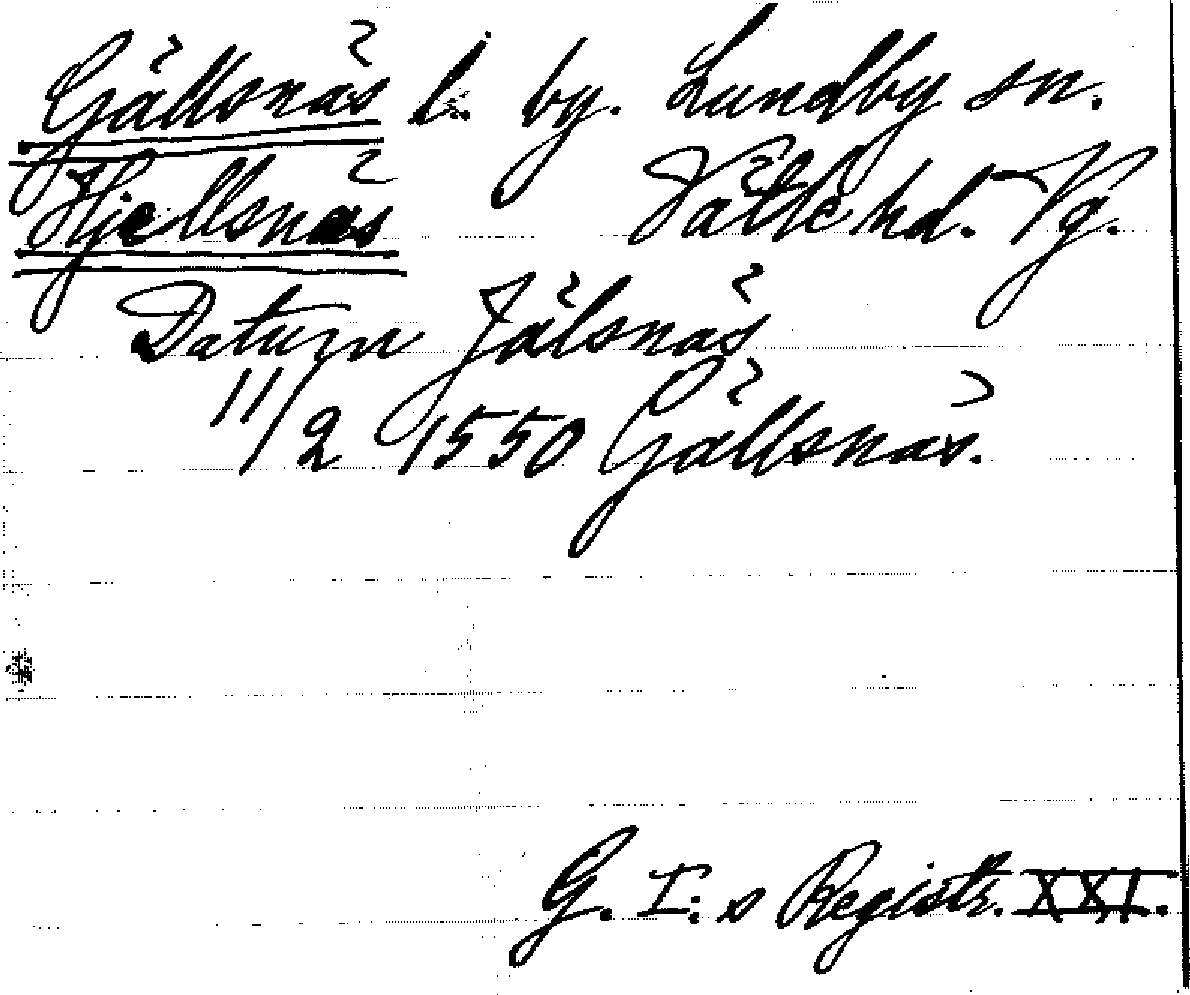 Gällsnäs l. by. Lundby sn.
Hjellsnäs Vättle hd. Vg.
Datum Jälsnäs
11/2 1550 Gällsnäs.
G. I:s Registr. XXI.